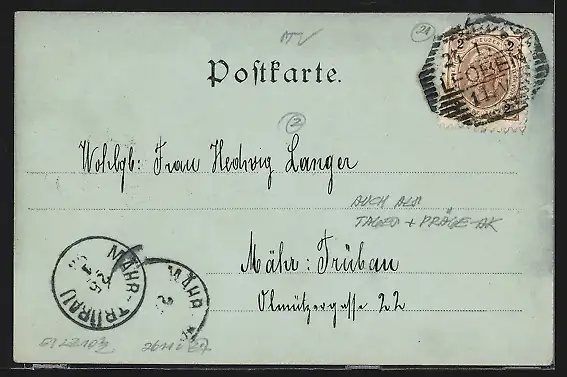 Postkarte.
LEOBEN
2
2
Wohlgb: Frau Hedwig Langer
AUCH ALS
TAGES + PRÄGE-AK
Mähr: Trübau
Olmützergasse 22
MÄHR. TRÜBAU
MÄHR.